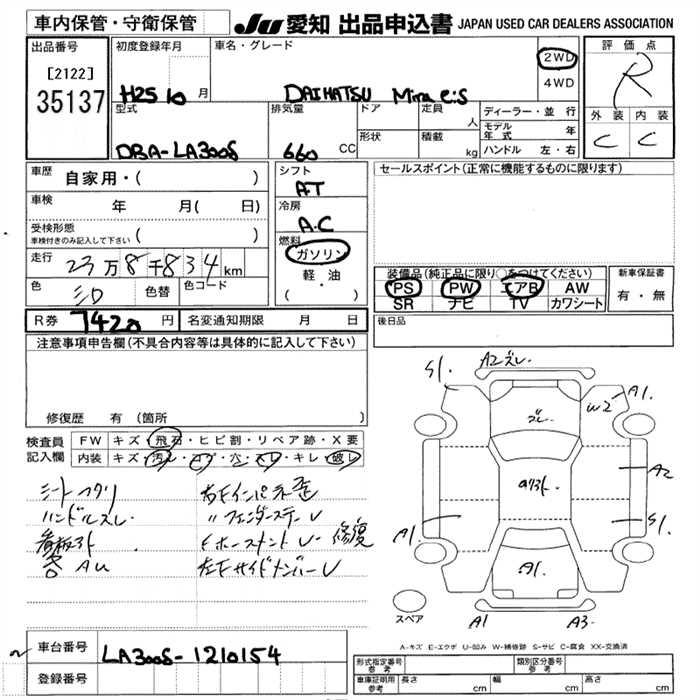 車内保管・守衛保管
JU 愛知 出品申込書 JAPAN USED CAR DEALERS ASSOCIATION
出品番号
[2122]
35137
初度登録年月
H25 10 月
車名・グレード
DAIHATSU Mira e:S
2WD
4WD
評価点
R
外装 内装
C C
型式
DBA-LA300S
排気量
660 CC
ドア
定員
人
形状
積載
kg
ディーラー・並行
モデル年式 年
ハンドル 左・右
車歴
自家用・( )
車検
年 月( 日)
受検形態
車検付きのみ記入して下さい ( )
走行
23万8千834km
色
シロ
色替
色コード
シフト
AT
冷房
A.C
燃料
ガソリン
軽・油
( )
セールスポイント(正常に機能するものに限ります)
装備品(純正品に限り○をつけてください)
PS PW エアB AW
SR ナビ TV カワシート
新車保証書
有・無
R券 7420 円
名変通知期限 月 日
後日品
注意事項申告欄(不具合内容等は具体的に記入して下さい)
修復歴 有(箇所 )
検査員記入欄
FW キズ・飛石・ヒビ割・リペア跡・X要
内装 キズ・汚レ・コゲ・穴・スレ・キレ・破レ
ハンドルスレ
看板外
右Fインパネ歪
〃フェンダーステーU
修復
左Fサイドメンバー U
S1.
A2ズレ
A1.
W2
ズレ
A2
S1.
A1.
A1.
スペア
A1
A3.
A-キズ E-エクボ U-凹み W-補修跡 S-サビ C-腐食 XX-交換済
車台番号
LA300S-1210154
登録番号
形式指定番号
参考
類別区分番号
参考
車庫証明用
参考
長さ cm
幅 cm
高さ cm